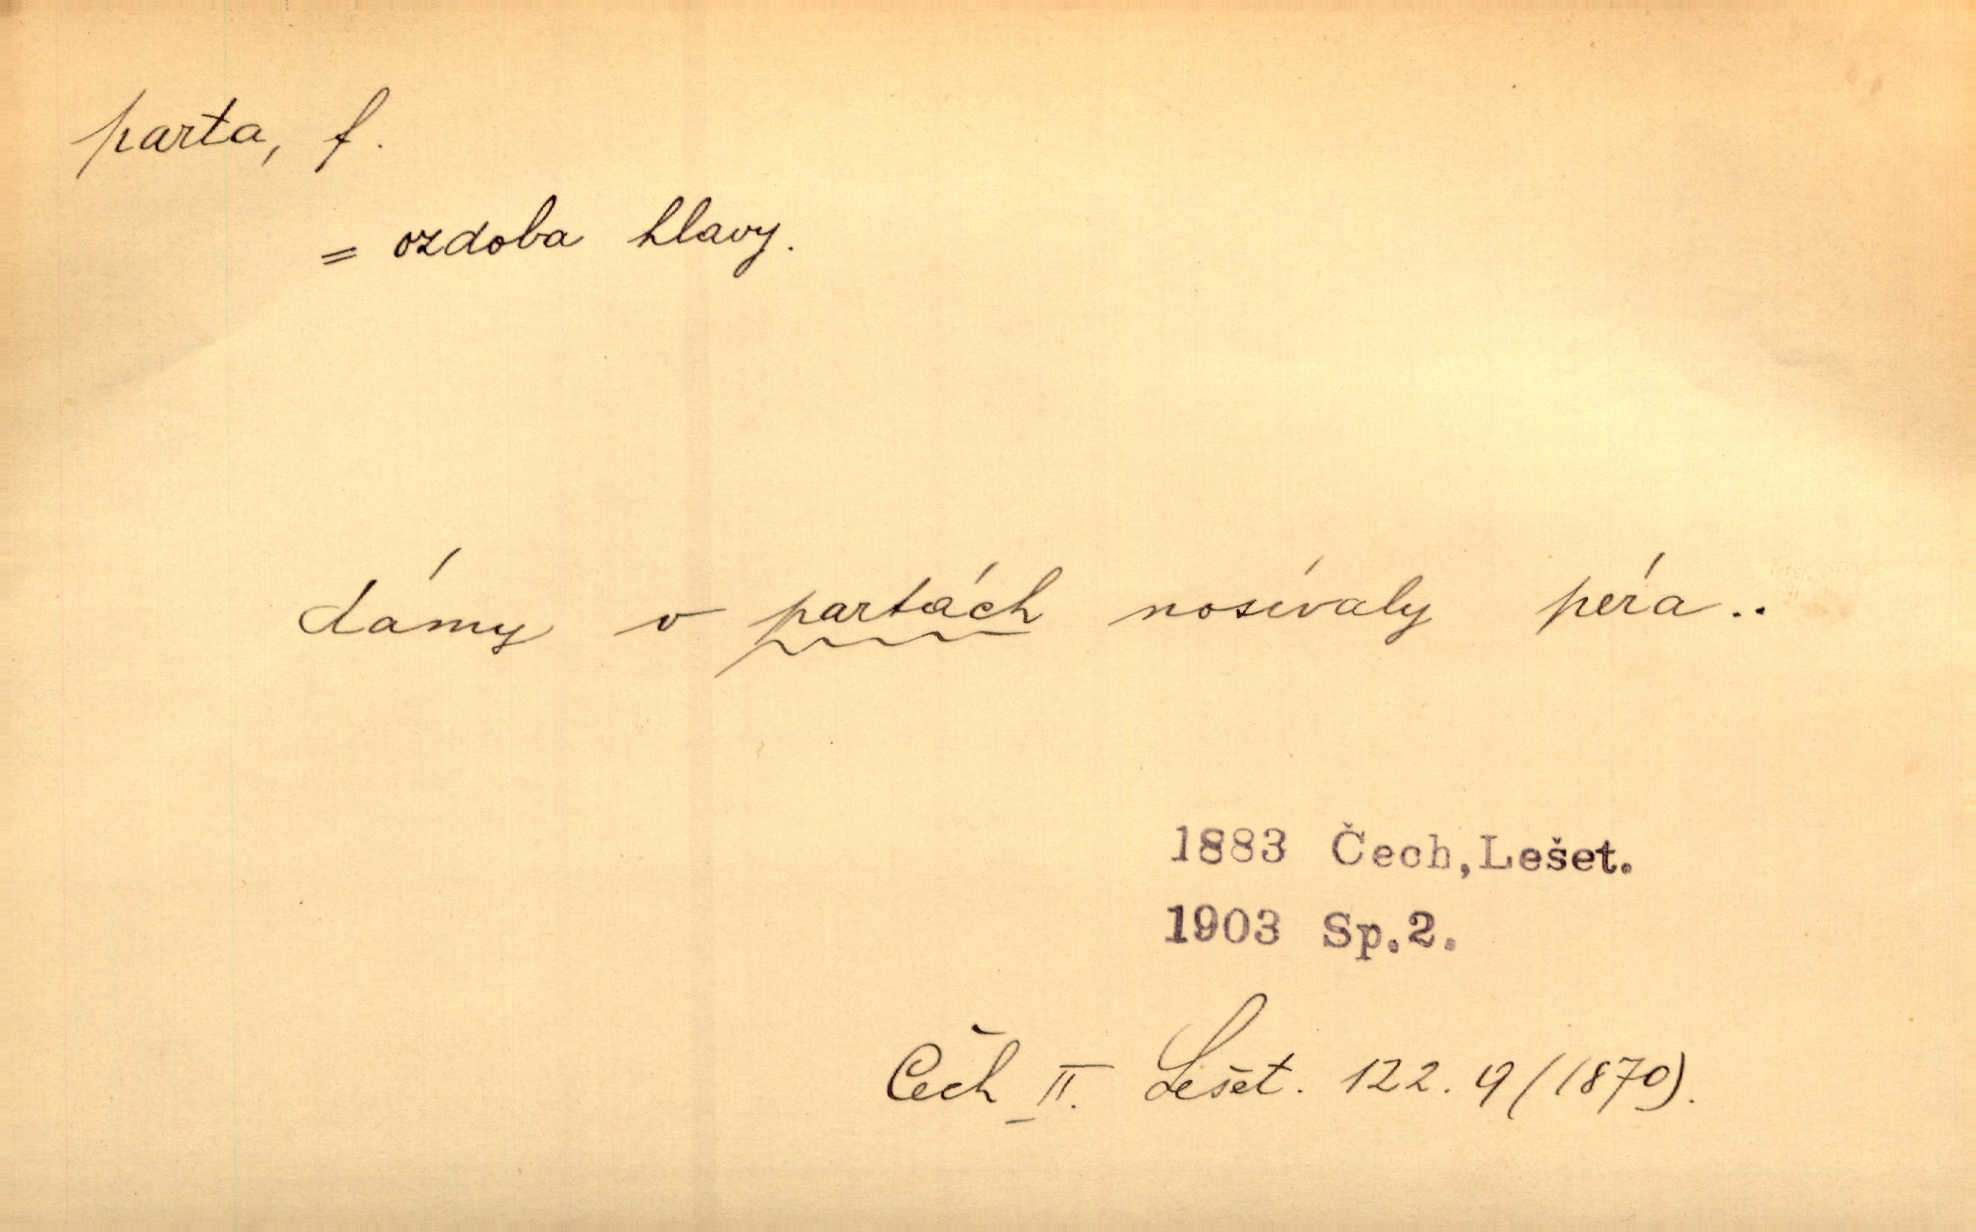 parta, f.
= ozdoba hlavy.
dámy v partách nosívaly péra..
1883 Čech, Lešet.
1903 Sp.2.
Čech II. Lešet. 122. 9 (1870).